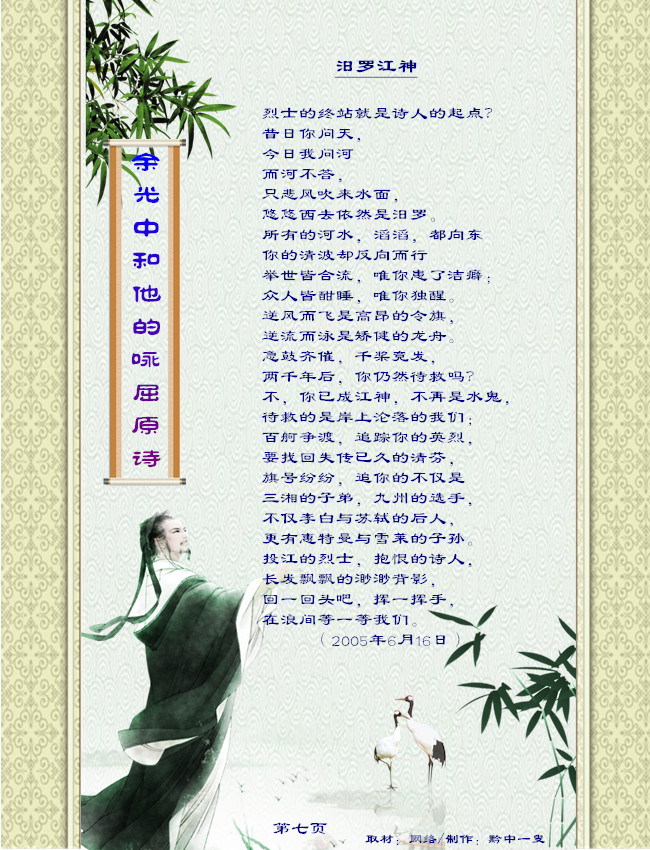 汨罗江神
烈士的终站就是诗人的起点?
昔日你问天,
今日我问河
而河不答,
只悲风吹来水面,
悠悠西去依然是汨罗。
所有的河水, 滔滔, 都向东
你的清波却反向而行
举世皆合流, 唯你患了洁癖;
众人皆酣睡, 唯你独醒。
逆风而飞是高昂的令旗,
逆流而泳是矫健的龙舟。
急鼓齐催, 千桨竞发,
两千年后, 你仍然待救吗?
不, 你已成江神, 不再是水鬼,
待救的是岸上沦落的我们;
百舸争渡, 追踪你的英烈,
要找回失传已久的清芬,
旗号纷纷, 追你的不仅是
三湘的子弟, 九州的选手,
不仅李白与苏轼的后人,
更有惠特曼与雪莱的子孙。
投江的烈士, 抱恨的诗人,
长发飘飘的渺渺背影,
回一回头吧, 挥一挥手,
在浪间等一等我们。
( 2005年6月16日 )
余光中和他的咏屈原诗
第七页
取材: 网络/制作: 黔中一叟